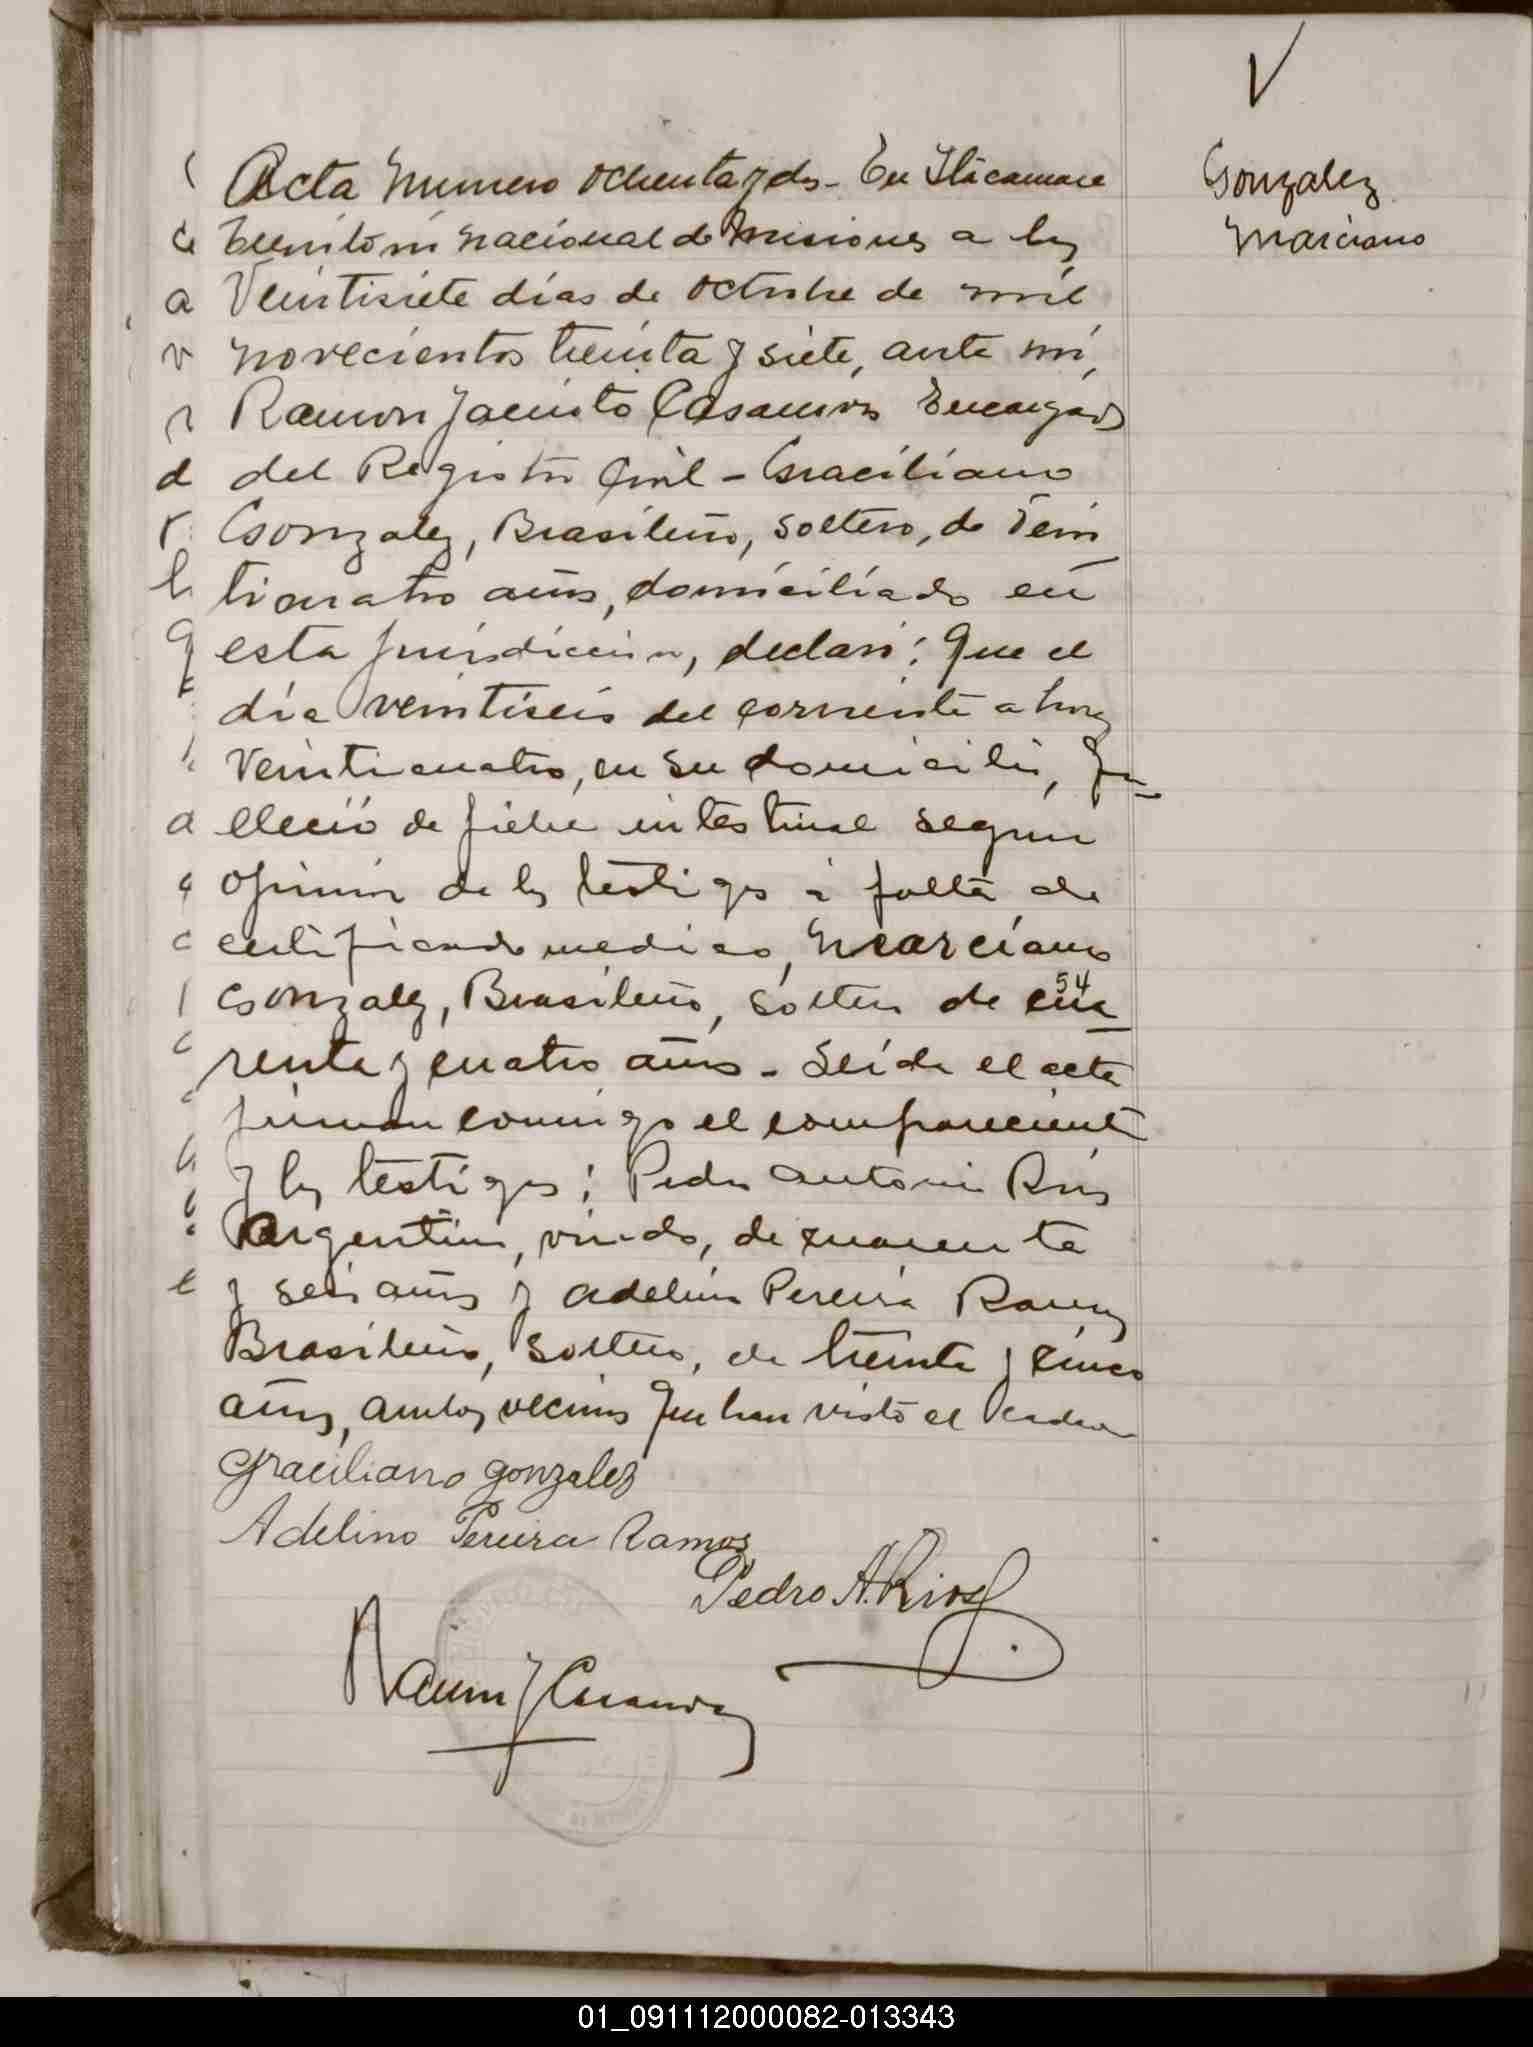 V
Gonzalez
Marciano
Acta Numero ochenta y dos - En Itacaruare
Territorio nacional de Misiones a los
Veintisiete días de octubre de mil
novecientos treinta y siete, ante mí,
Ramon Jacinto Casanova Encargado
del Registro Civil - Graciliano
Gonzalez, Brasileño, soltero, de vein
ticuatro años, domiciliado en
esta jurisdiccion, declaró: Que el
día veintiseis del corriente a horas
veinticuatro, en su domicilio, fa-
lleció de fiebre intestinal segun
opinion de los testigos a falta de
certificado medico, Marciano
Gonzalez, Brasileño, soltero de cua-
54
renta y cuatro años - Leida el acta
firman conmigo el compareciente
y los testigos: Pedro Antonio Rios
Argentino, viudo, de cuarenta
y seis años y Adelino Pereira Ramos
Brasileño, soltero, de treinta y cinco
años, ambos vecinos que han visto el cadaver
Graciliano gonzalez
Adelino Pereira Ramos
Pedro A. Rios
Ramon J Casanova
01_091112000082-013343